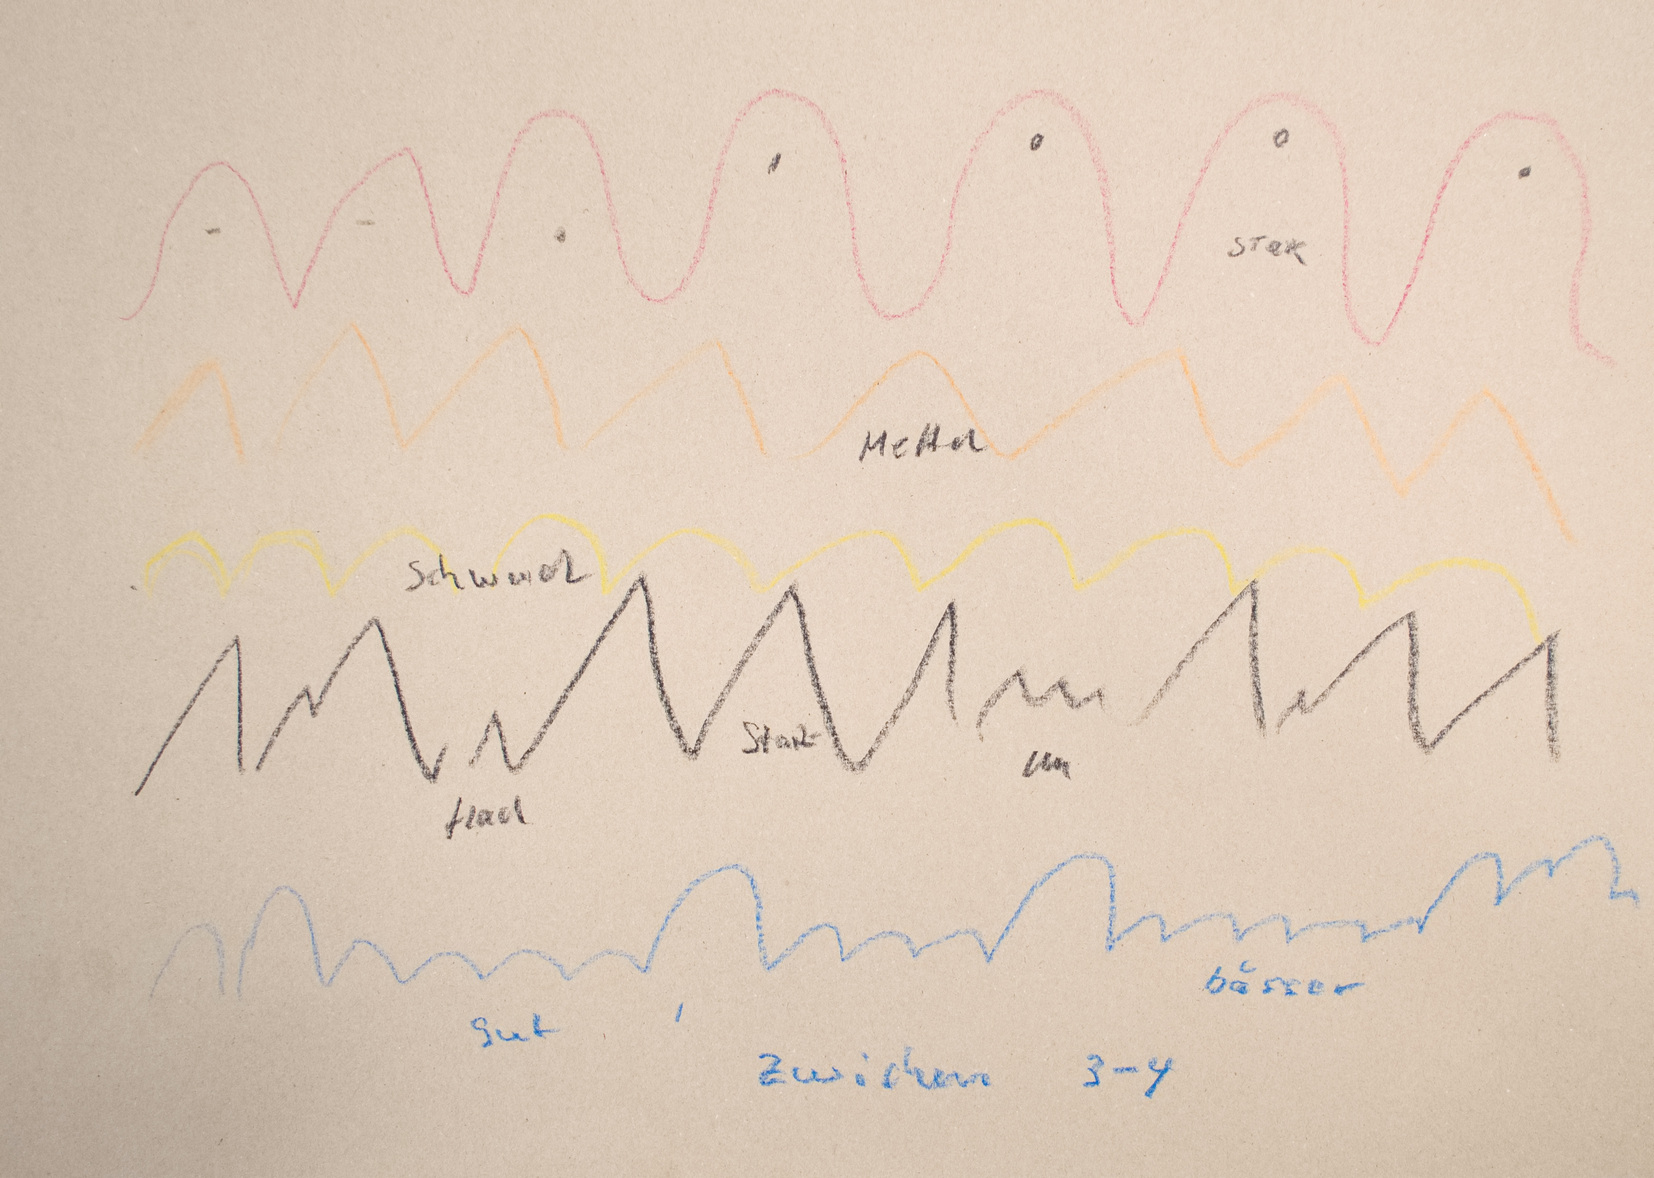 stak
Mettel
Schwach
Stark
um
flach
bässer
gut
Zwichen 3-4